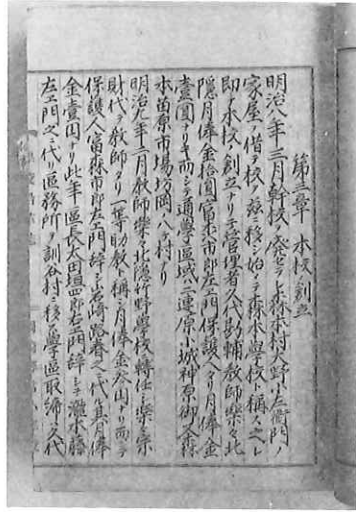 第三章 本校創立
明治八年三月幹校ノ発セラレ森本村大野小左衛門ノ
家屋ヲ借テ校ヲ茲ニ移シ始テ森本學校ト稱ス之レ
即チ本校ノ創立ナリ三管理者久代勘輔教師楽々北
隠月俸金拾圓富森市郎左エ門保護人タリ月俸金
壹圓ナリキ而シテ通學區域ハ二連原小城神原御又森
本曽原市場坊岡ノ八ヶ村タリ
明治九年二月教師楽々北隠竹野學校ヘ轉任シ楽々宗
財代テ教師タリ一等助教ト稱シ月俸金参円ナリ而シテ
保護人富森市郎左エ門辞シ山岩﨑路春之ニ代ル其月俸
金壹円ナリ此年區長太田垣四郎左エ門辞シテ瀧本藤
左エ門之ニ代ル區務所ヲ訓谷村ニ移ス學區取締ハ久代